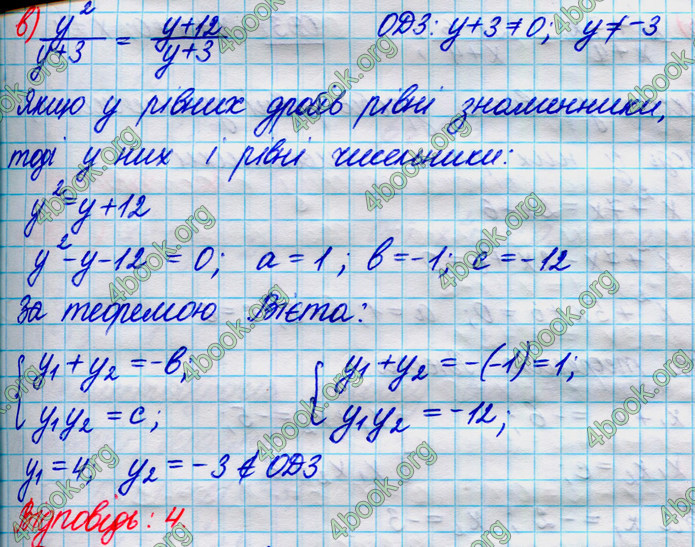 в) y²/y+3 = y+12/y+3   ОДЗ: y+3≠0; y≠-3
Якщо у рівних дробів рівні знаменники,
тоді у них і рівні чисельники:
y²=y+12
y²-y-12=0; a=1; в=-1; c=-12
За теоремою Вієта:
{ y₁+y₂=-в;   { y₁+y₂=-(-1)=1;
y₁y₂=c;   y₁y₂=-12;
y₁=4; y₂=-3∉ОДЗ
Відповідь: 4.
4book.org